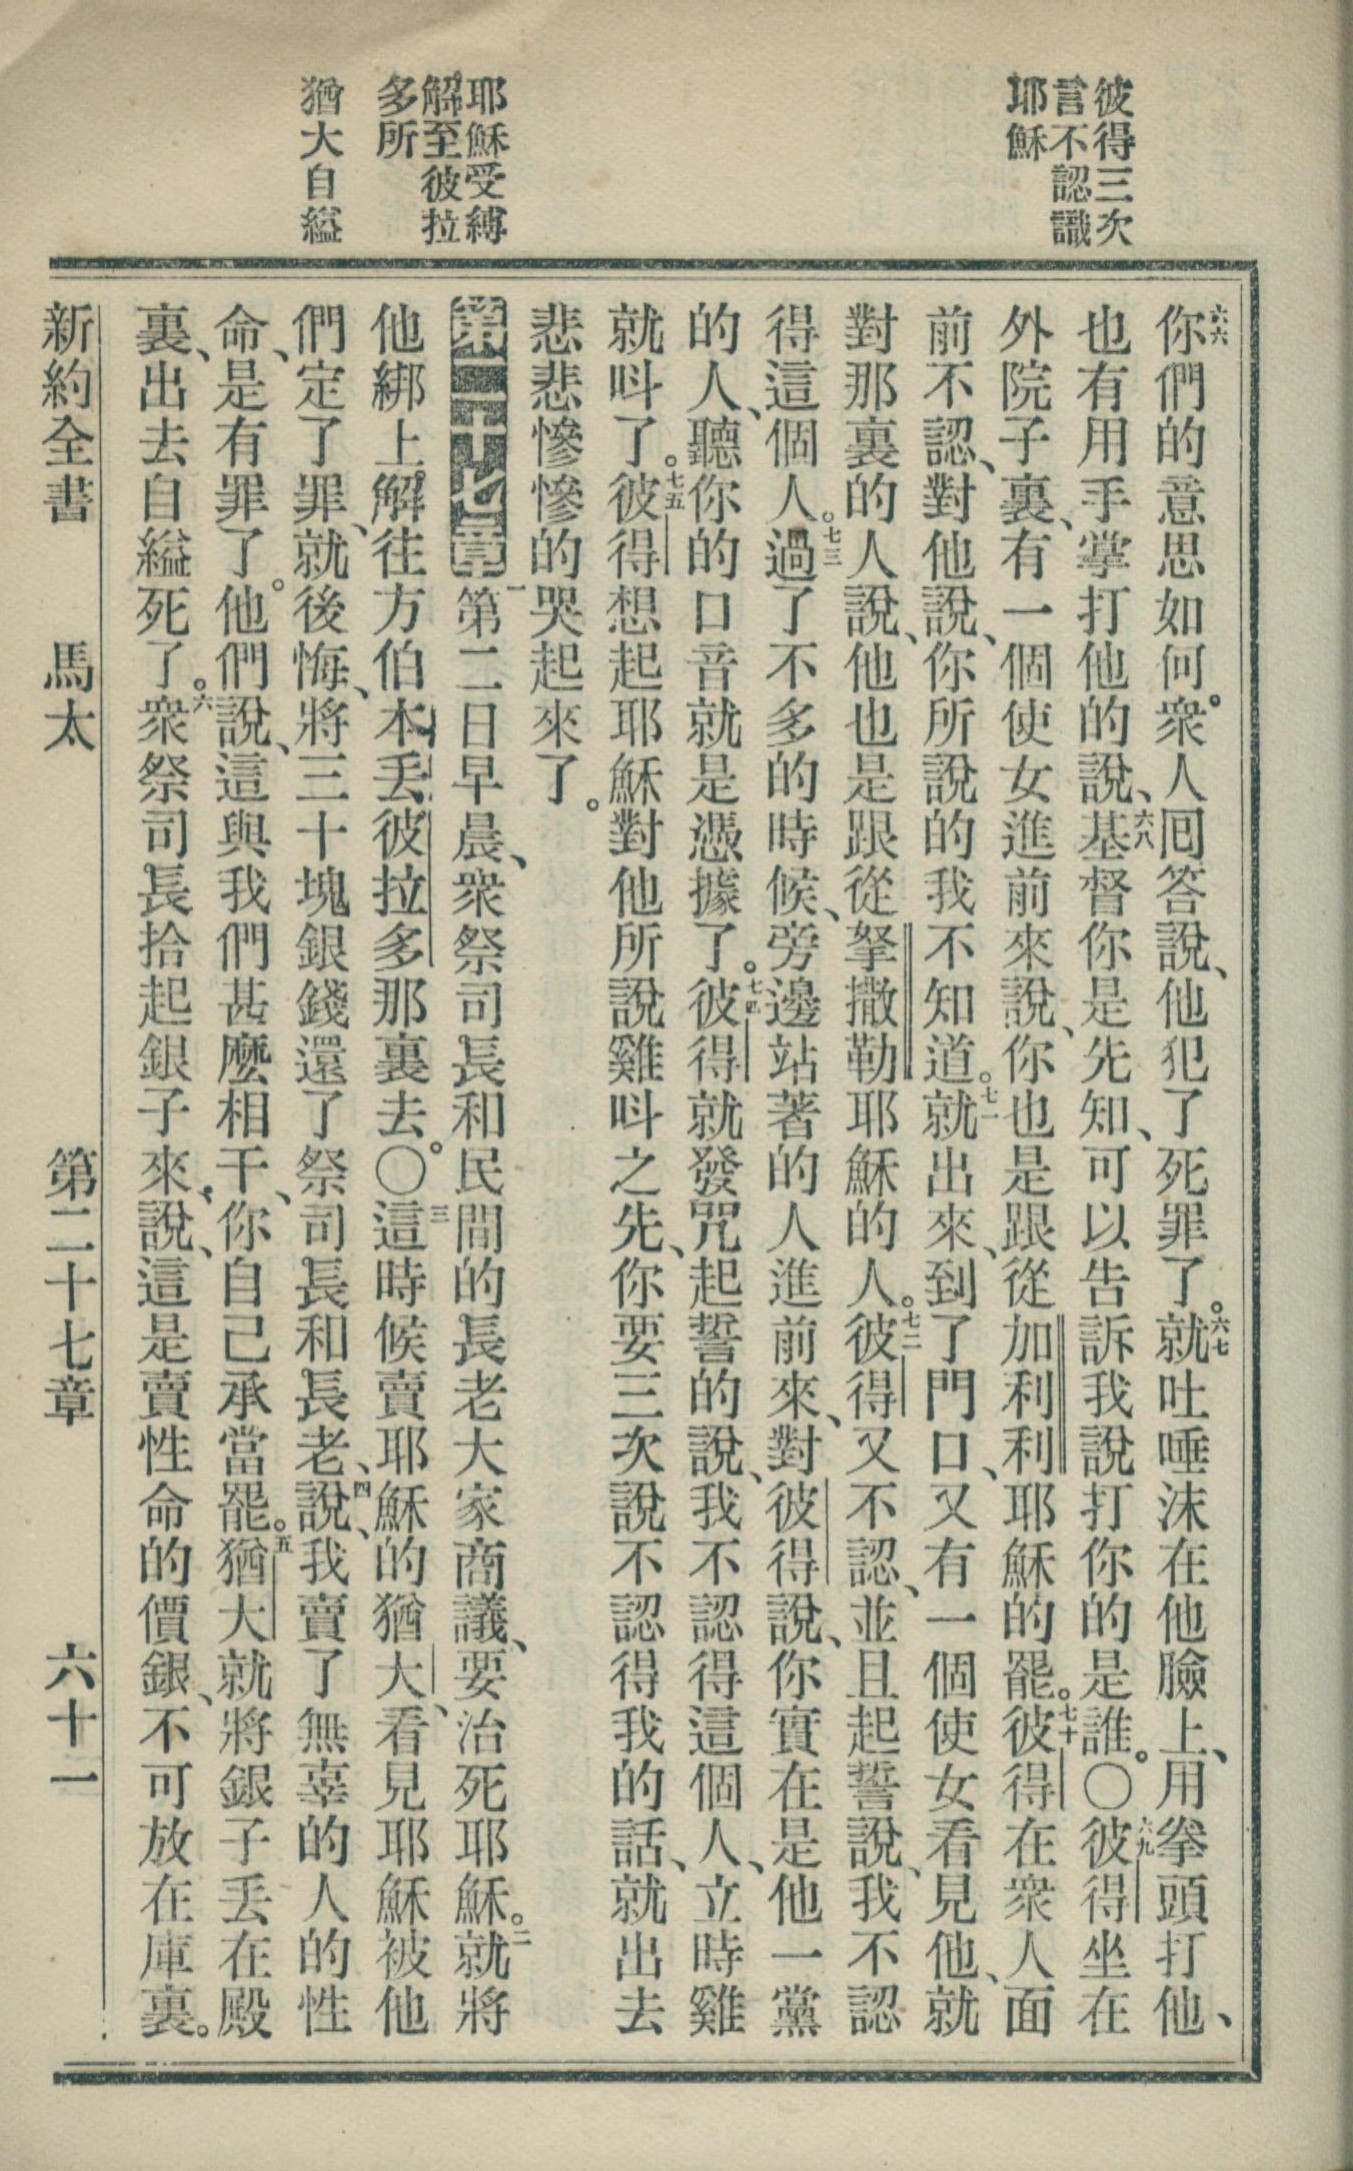 彼得三次
言不認識
耶穌
耶穌受縛
解至彼拉
多所
猶大自縊
六六你們的意思如何。衆人囘答說、他犯了死罪了。六七就吐唾沫在他臉上、用拳頭打他、
也有用手掌打他的說、六八基督你是先知、可以告訴我說打你的是誰。〇六九彼得坐在
外院子裏、有一個使女進前來說、你也是跟從加利利耶穌的罷。七十彼得在衆人面
前不認、對他說、你所說的我不知道。七一就出來、到了門口、又有一個使女看見他、就
對那裏的人說、他也是跟從拏撒勒耶穌的人。七二彼得又不認、並且起誓說、我不認
得這個人。七三過了不多的時候、旁邊站著的人進前來、對彼得說、你實在是他一黨
的人、聽你的口音就是憑據了。七四彼得就發咒起誓的說、我不認得這個人、立時雞
就呌了。七五彼得想起耶穌對他所說雞呌之先、你要三次說不認得我的話、就出去
悲悲慘慘的哭起來了。
第二十七章 一第二日早晨、衆祭司長和民間的長老大家商議、要治死耶穌。二就將
他綁上解往方伯本丢彼拉多那裏去。〇三這時候賣耶穌的猶大、看見耶穌被他
們定了罪、就後悔、將三十塊銀錢還了祭司長和長老、四說、我賣了無辜的人的性
命、是有罪了。他們說、這與我們甚麼相干、你自己承當罷。五猶大就將銀子丢在殿
裏、出去自縊死了。六衆祭司長拾起銀子來、說、這是賣性命的價銀、不可放在庫裏。
新約全書 馬太 第二十七章 六十一